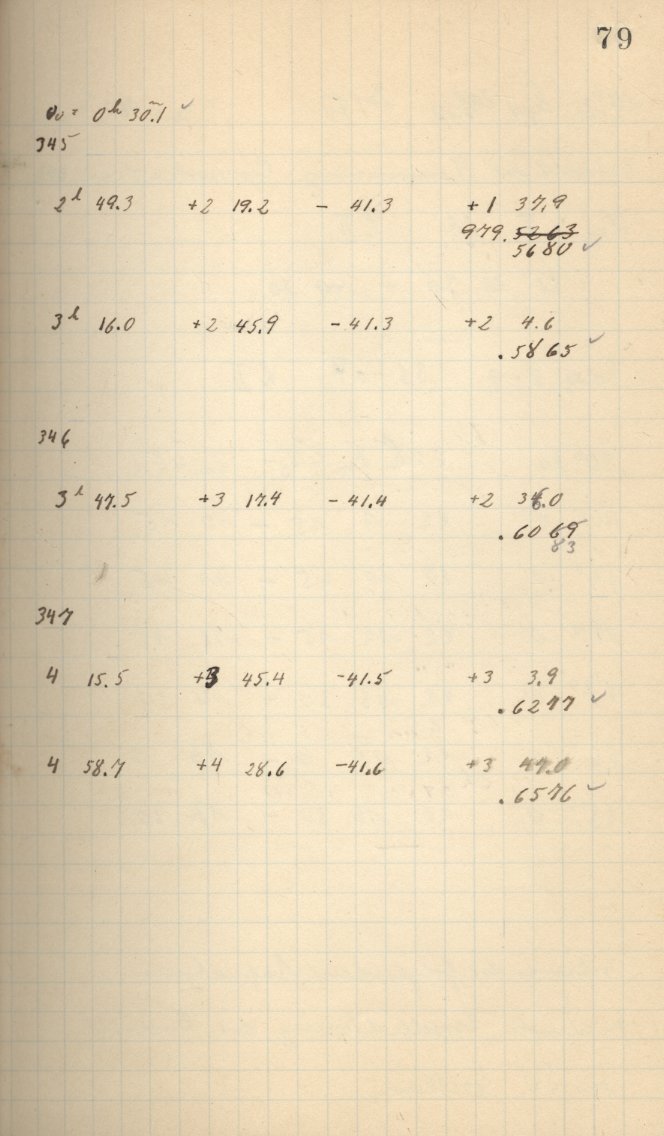 79
θ₀ = 0ʰ 30.1ᵐ ✓
345
2ʰ 49.3 +2 19.2 - 41.3 +1 37.9
979. 5263
5680 ✓
3ʰ 16.0 +2 45.9 - 41.3 +2 4.6
.5865 ✓
346
3ʰ 47.5 +3 17.4 - 41.4 +2 36.0
.6069
83
347
4 15.5 +3 45.4 -41.5 +3 3.9
.6277 ✓
4 58.7 +4 28.6 -41.6 +3 47.0
.6576 ✓